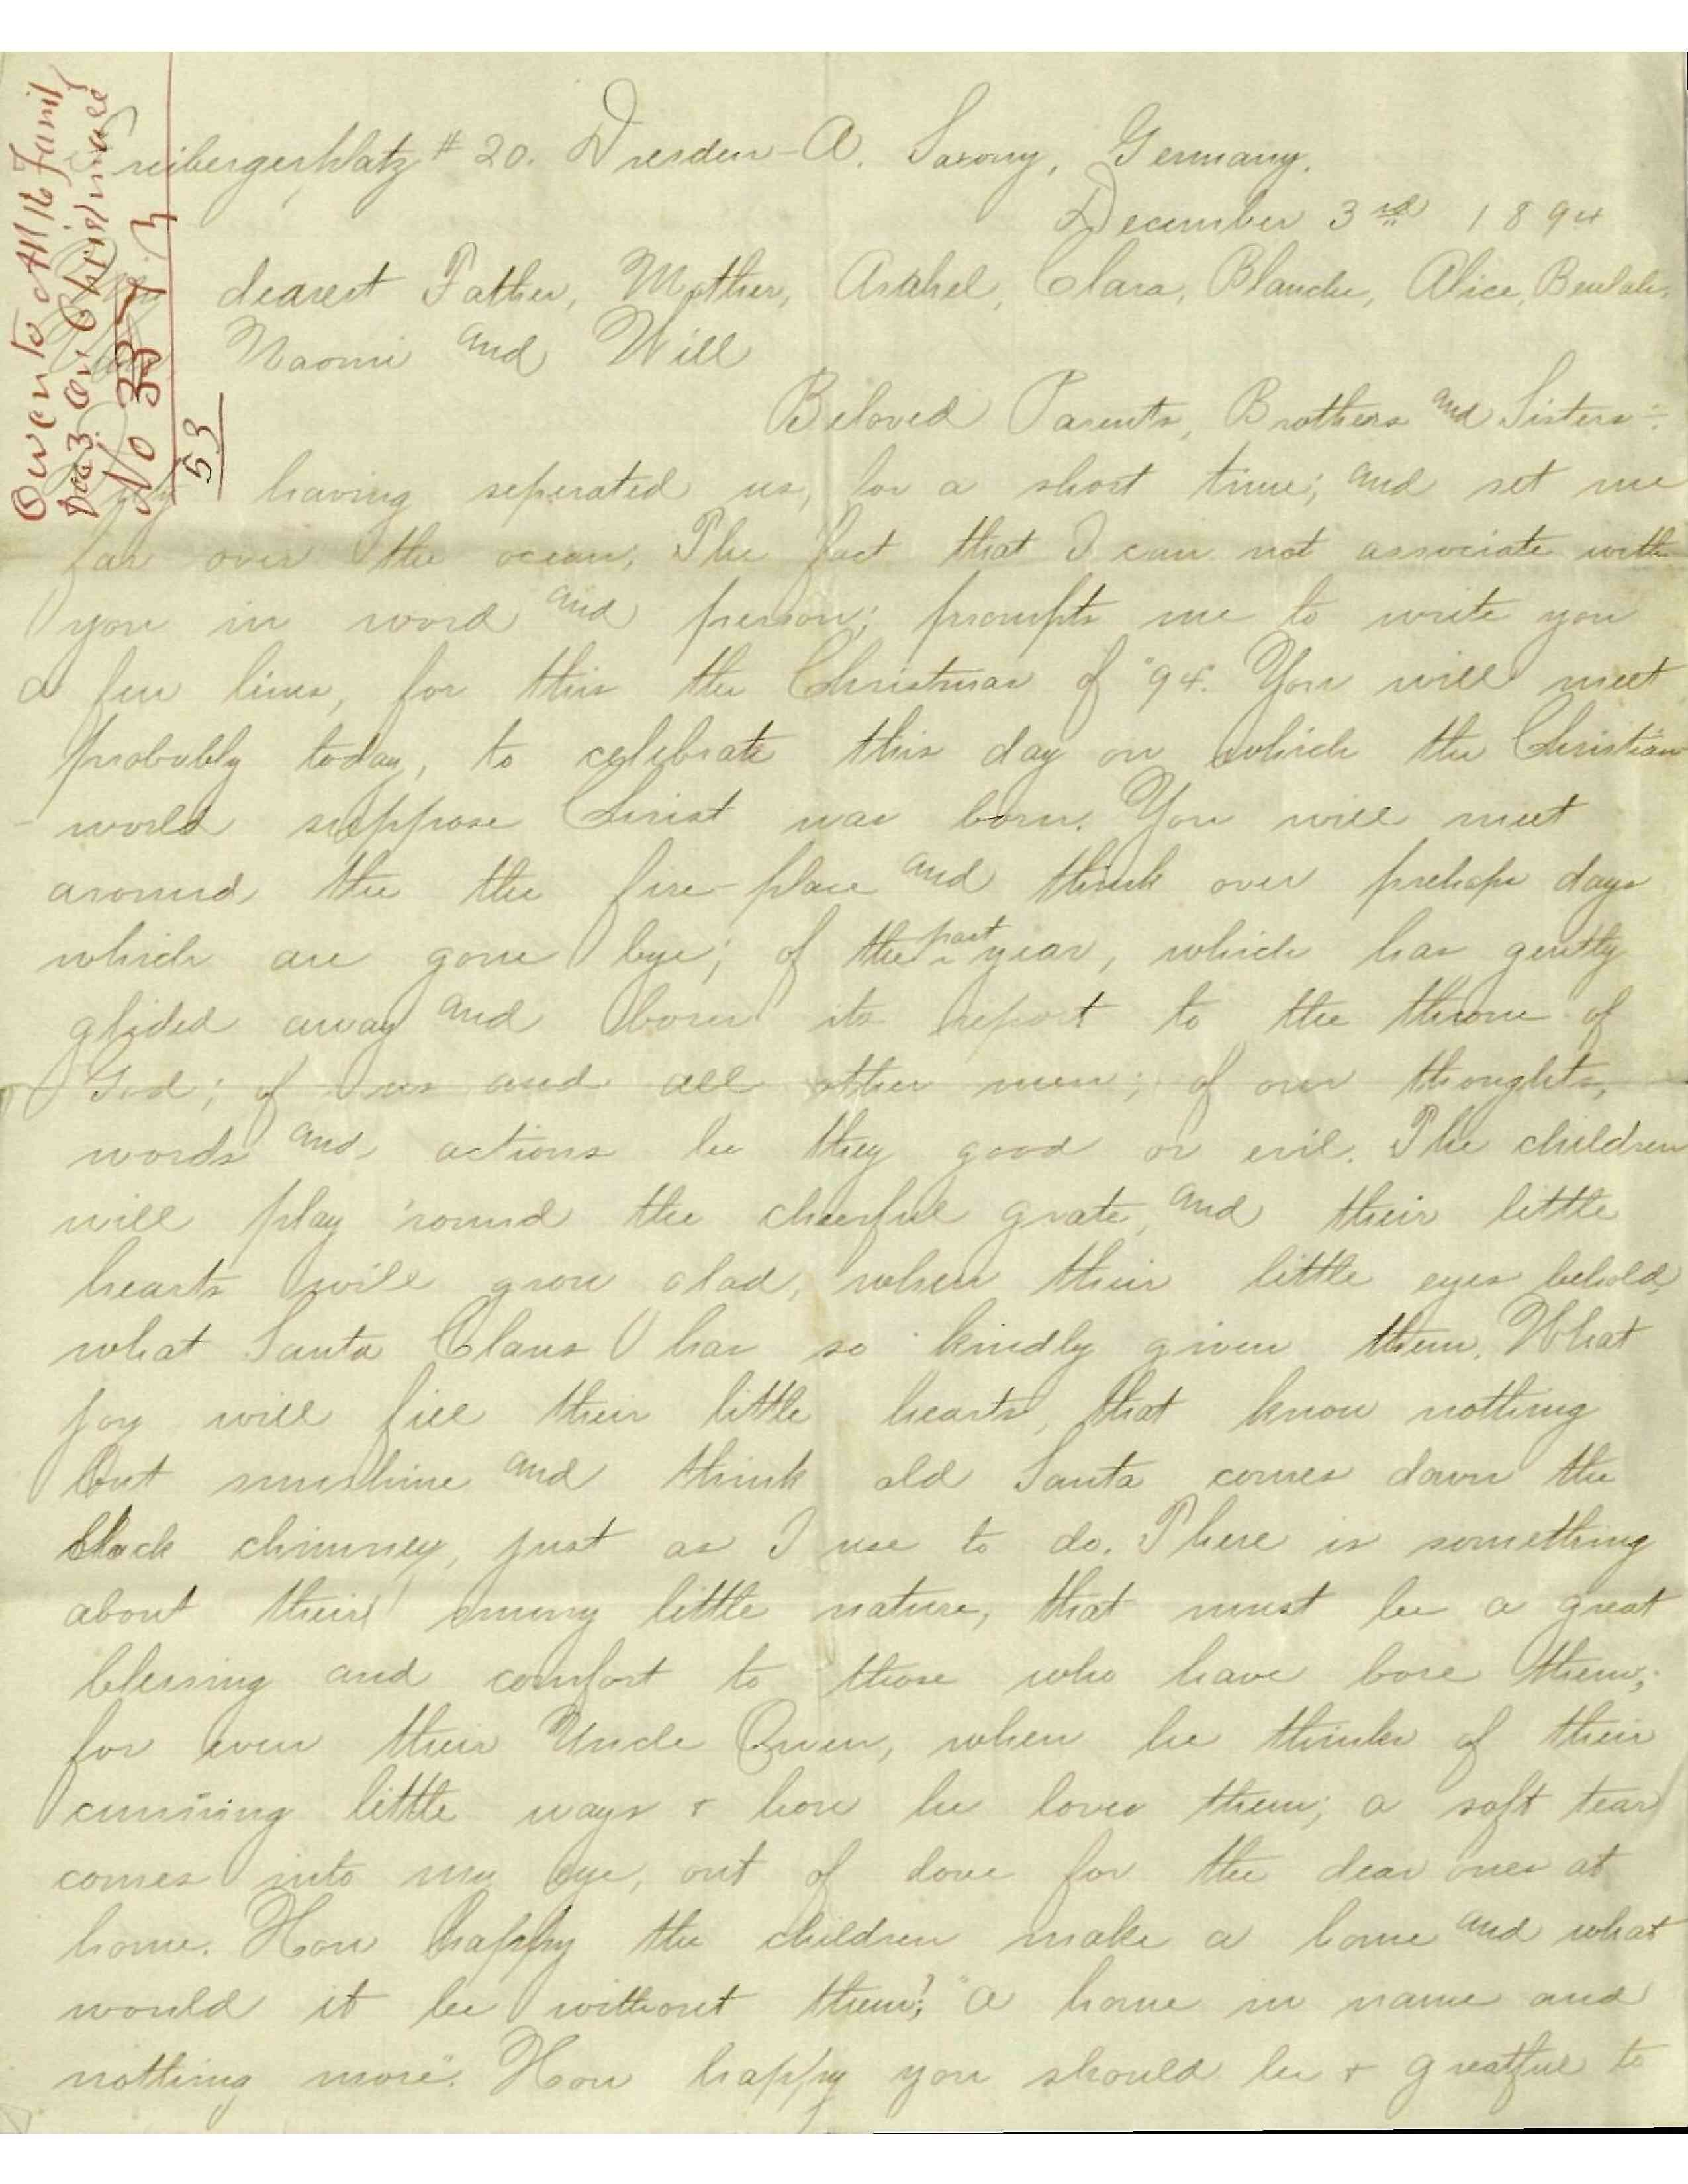 Owen to All 16 Family
Dec 3 on Christmas
No 33
53
Freibergerplatz # 20. Dresden-A. Saxony, Germany.
December 3rd 1894
dearest Father, Mother, Asahel, Clara, Blanche, Alice, Beulah,
Naomi and Will
Beloved Parents, Brothers and Sisters:-
having seperated us, for a short time; and set me
far over the ocean, The fact that I can not associate with
you in word and person; prompts me to write you
a few lines, for this the Christmas of "94. You will meet
probably today, to celebrate this day on which the Christian
world suppose Christ was born. You will meet
around the the fire-place and think over prehaps days
which are gone bye; of the past year, which has gently
glided away and born its report to the throne of
God; of us and all other men; of our thoughts,
words and actions be they good or evil. The children
will play 'round the cheerful grate, and their little
hearts will grow glad, when their little eyes behold,
what Santa Claus has so kindly given them. What
joy will fill their little hearts, that know nothing
but sunshine and think old Santa comes down the
black chimney, just as I use to do. There is something
about their little nature, that must be a great
blessing and comfort to those who have bore them;
for even their Uncle Owen, when he thinks of their
cunning little ways & how he loves them; a soft tear
comes into my eye, out of love for the dear ones at
home. How happy the children make a home and what
would it be without them?; "a home in name and
nothing more". How happy you should be & greatful to